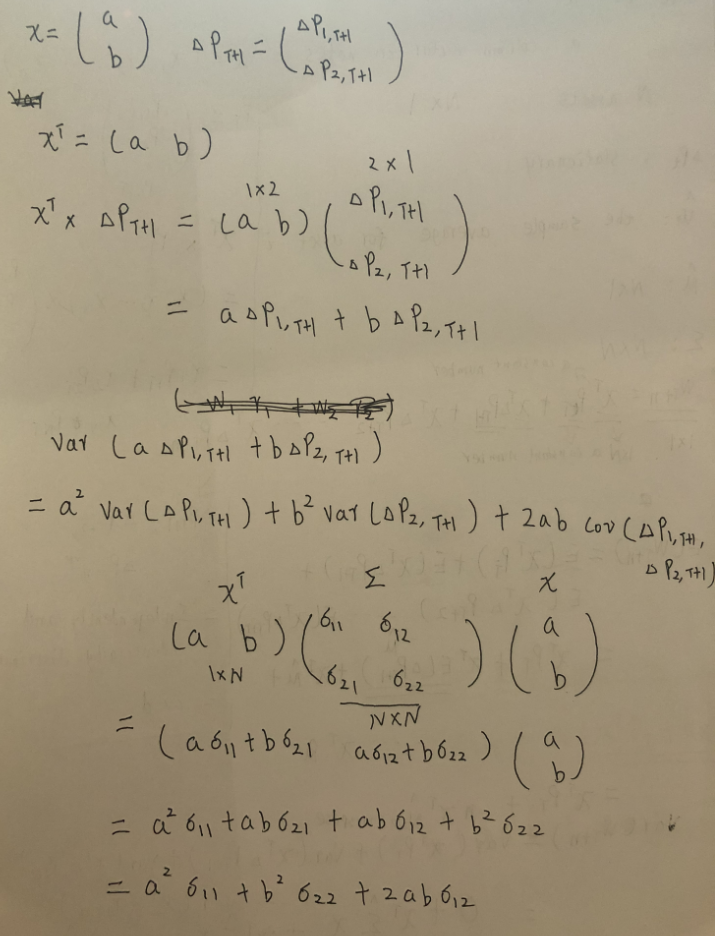 x = ( a b ) ΔP_{T+1} = ( ΔP_{1,T+1} ΔP_{2,T+1} )
Var
x^T = ( a b )
1×2 2×1
x^T × ΔP_{T+1} = ( a b ) ( ΔP_{1,T+1} ΔP_{2,T+1} )
= a ΔP_{1,T+1} + b ΔP_{2,T+1}
Var ( a ΔP_{1,T+1} + b ΔP_{2,T+1} )
= a² Var ( ΔP_{1,T+1} ) + b² Var ( ΔP_{2,T+1} ) + 2ab Cov ( ΔP_{1,T+1},
ΔP_{2,T+1} )
x^T Σ x
( a b ) ( σ_{11} σ_{12} σ_{21} σ_{22} ) ( a b )
1×N N×N
= ( aσ_{11} + bσ_{21} aσ_{12} + bσ_{22} ) ( a b )
= a² σ_{11} + abσ_{21} + abσ_{12} + b² σ_{22}
= a² σ_{11} + b² σ_{22} + 2abσ_{12}